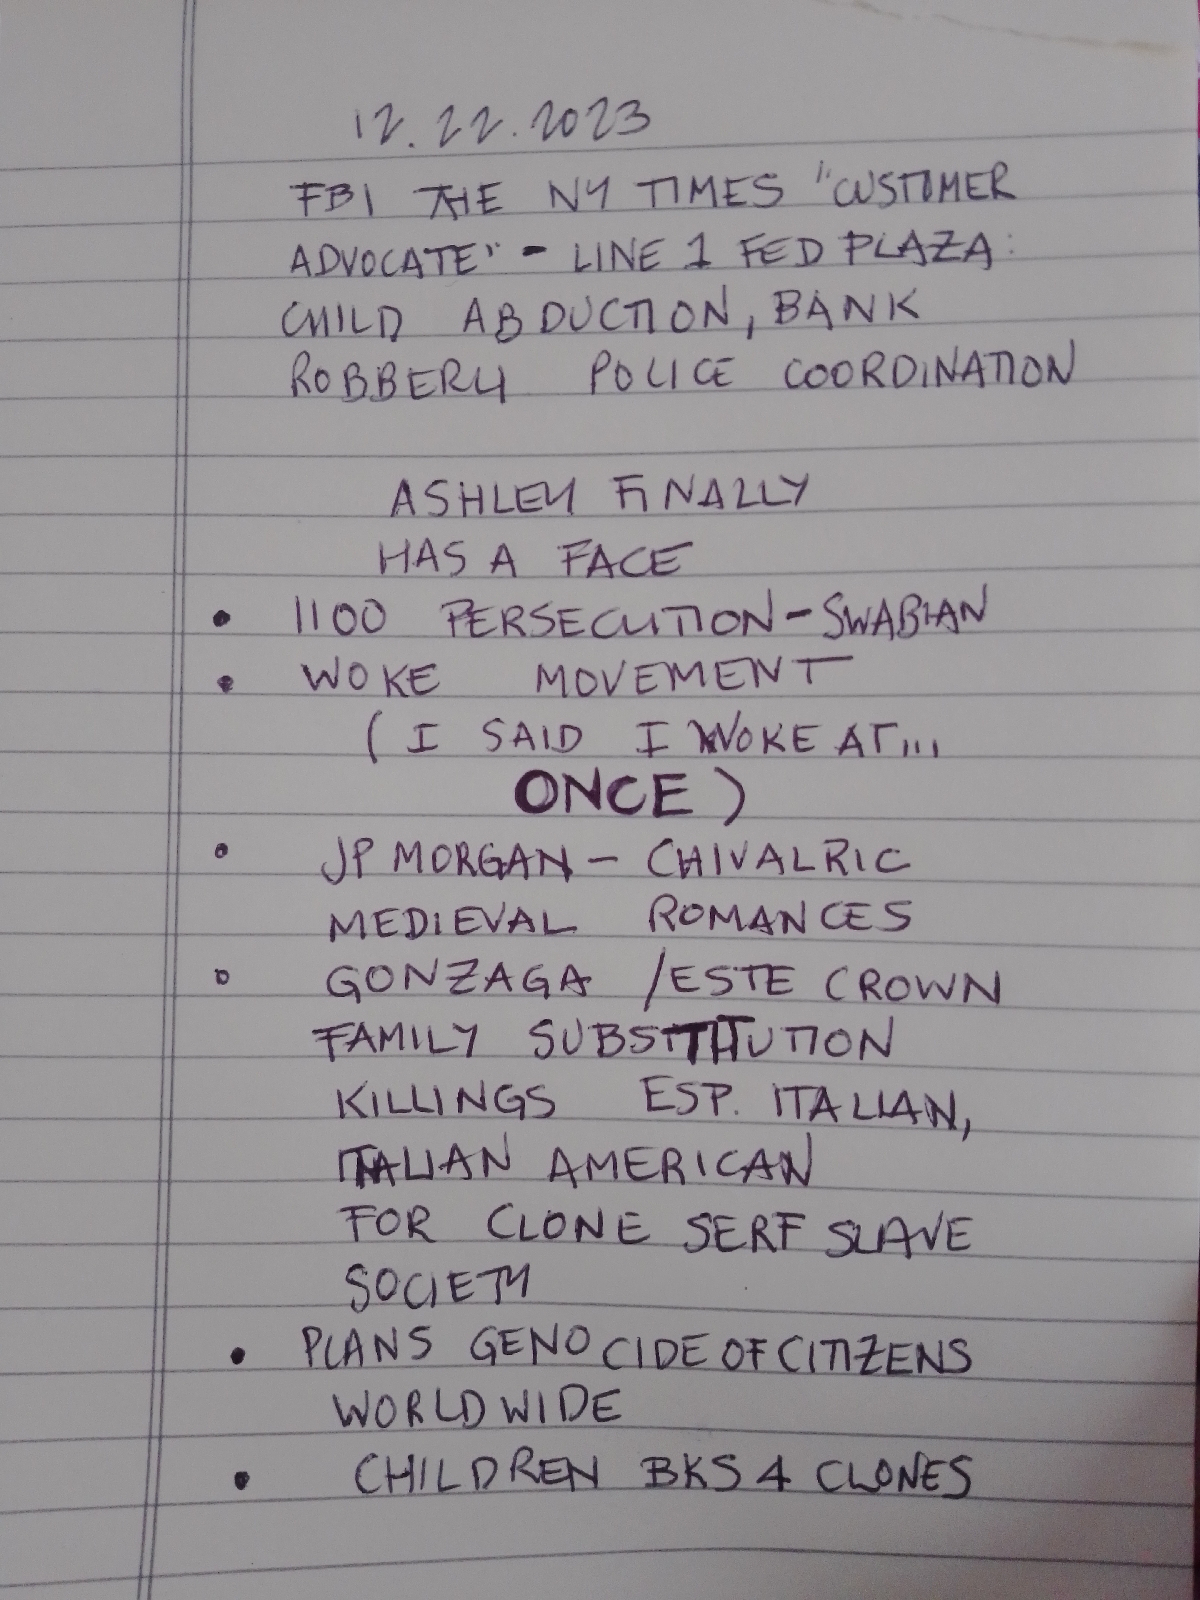 12.22.2023
FBI THE NY TIMES "CUSTOMER
ADVOCATE" - LINE 1 FED PLAZA:
CHILD ABDUCTION, BANK
ROBBERY POLICE COORDINATION
ASHLEY FINALLY
HAS A FACE
• 1100 PERSECUTION - SWABIAN
• WOKE MOVEMENT
( I SAID I WOKE AT...
ONCE )
• JP MORGAN - CHIVALRIC
MEDIEVAL ROMANCES
• GONZAGA / ESTE CROWN
FAMILY SUBSTITUTION
KILLINGS ESP. ITALIAN,
ITALIAN AMERICAN
FOR CLONE SERF SLAVE
SOCIETY
• PLANS GENOCIDE OF CITIZENS
WORLDWIDE
• CHILDREN BKS 4 CLONES